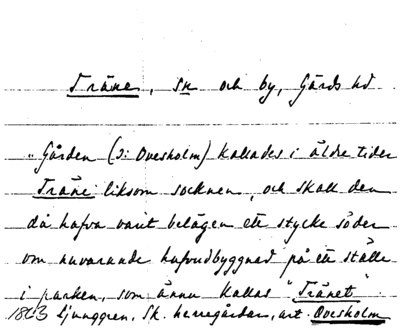 Träne, Sn och by, Gärds hd
"Gården (ɔ: Ovesholm) kallades i äldre tider
Träne liksom socknen, och skall den
då hafva varit belägen ett stycke söder
om nuvarande hufvudbyggnad på ett ställe
i parken, som ännu kallas "Tränet"
1863 Ljunggren, Sk. herregårdar, art. Ovesholm